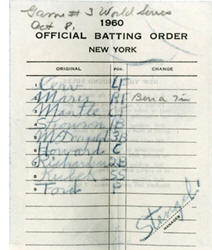 Game # 3 World Series
Oct
1960
OFFICIAL BATTING ORDER
NEW YORK
ORIGINAL POS. CHANGE
Cerv LF
Maris RF Berra 7 in
Mantle CF
Skowron 1B
McDougald 3B
Howard C
Richardson 2B
Kubek SS
Ford P
Stengel
MANAGER